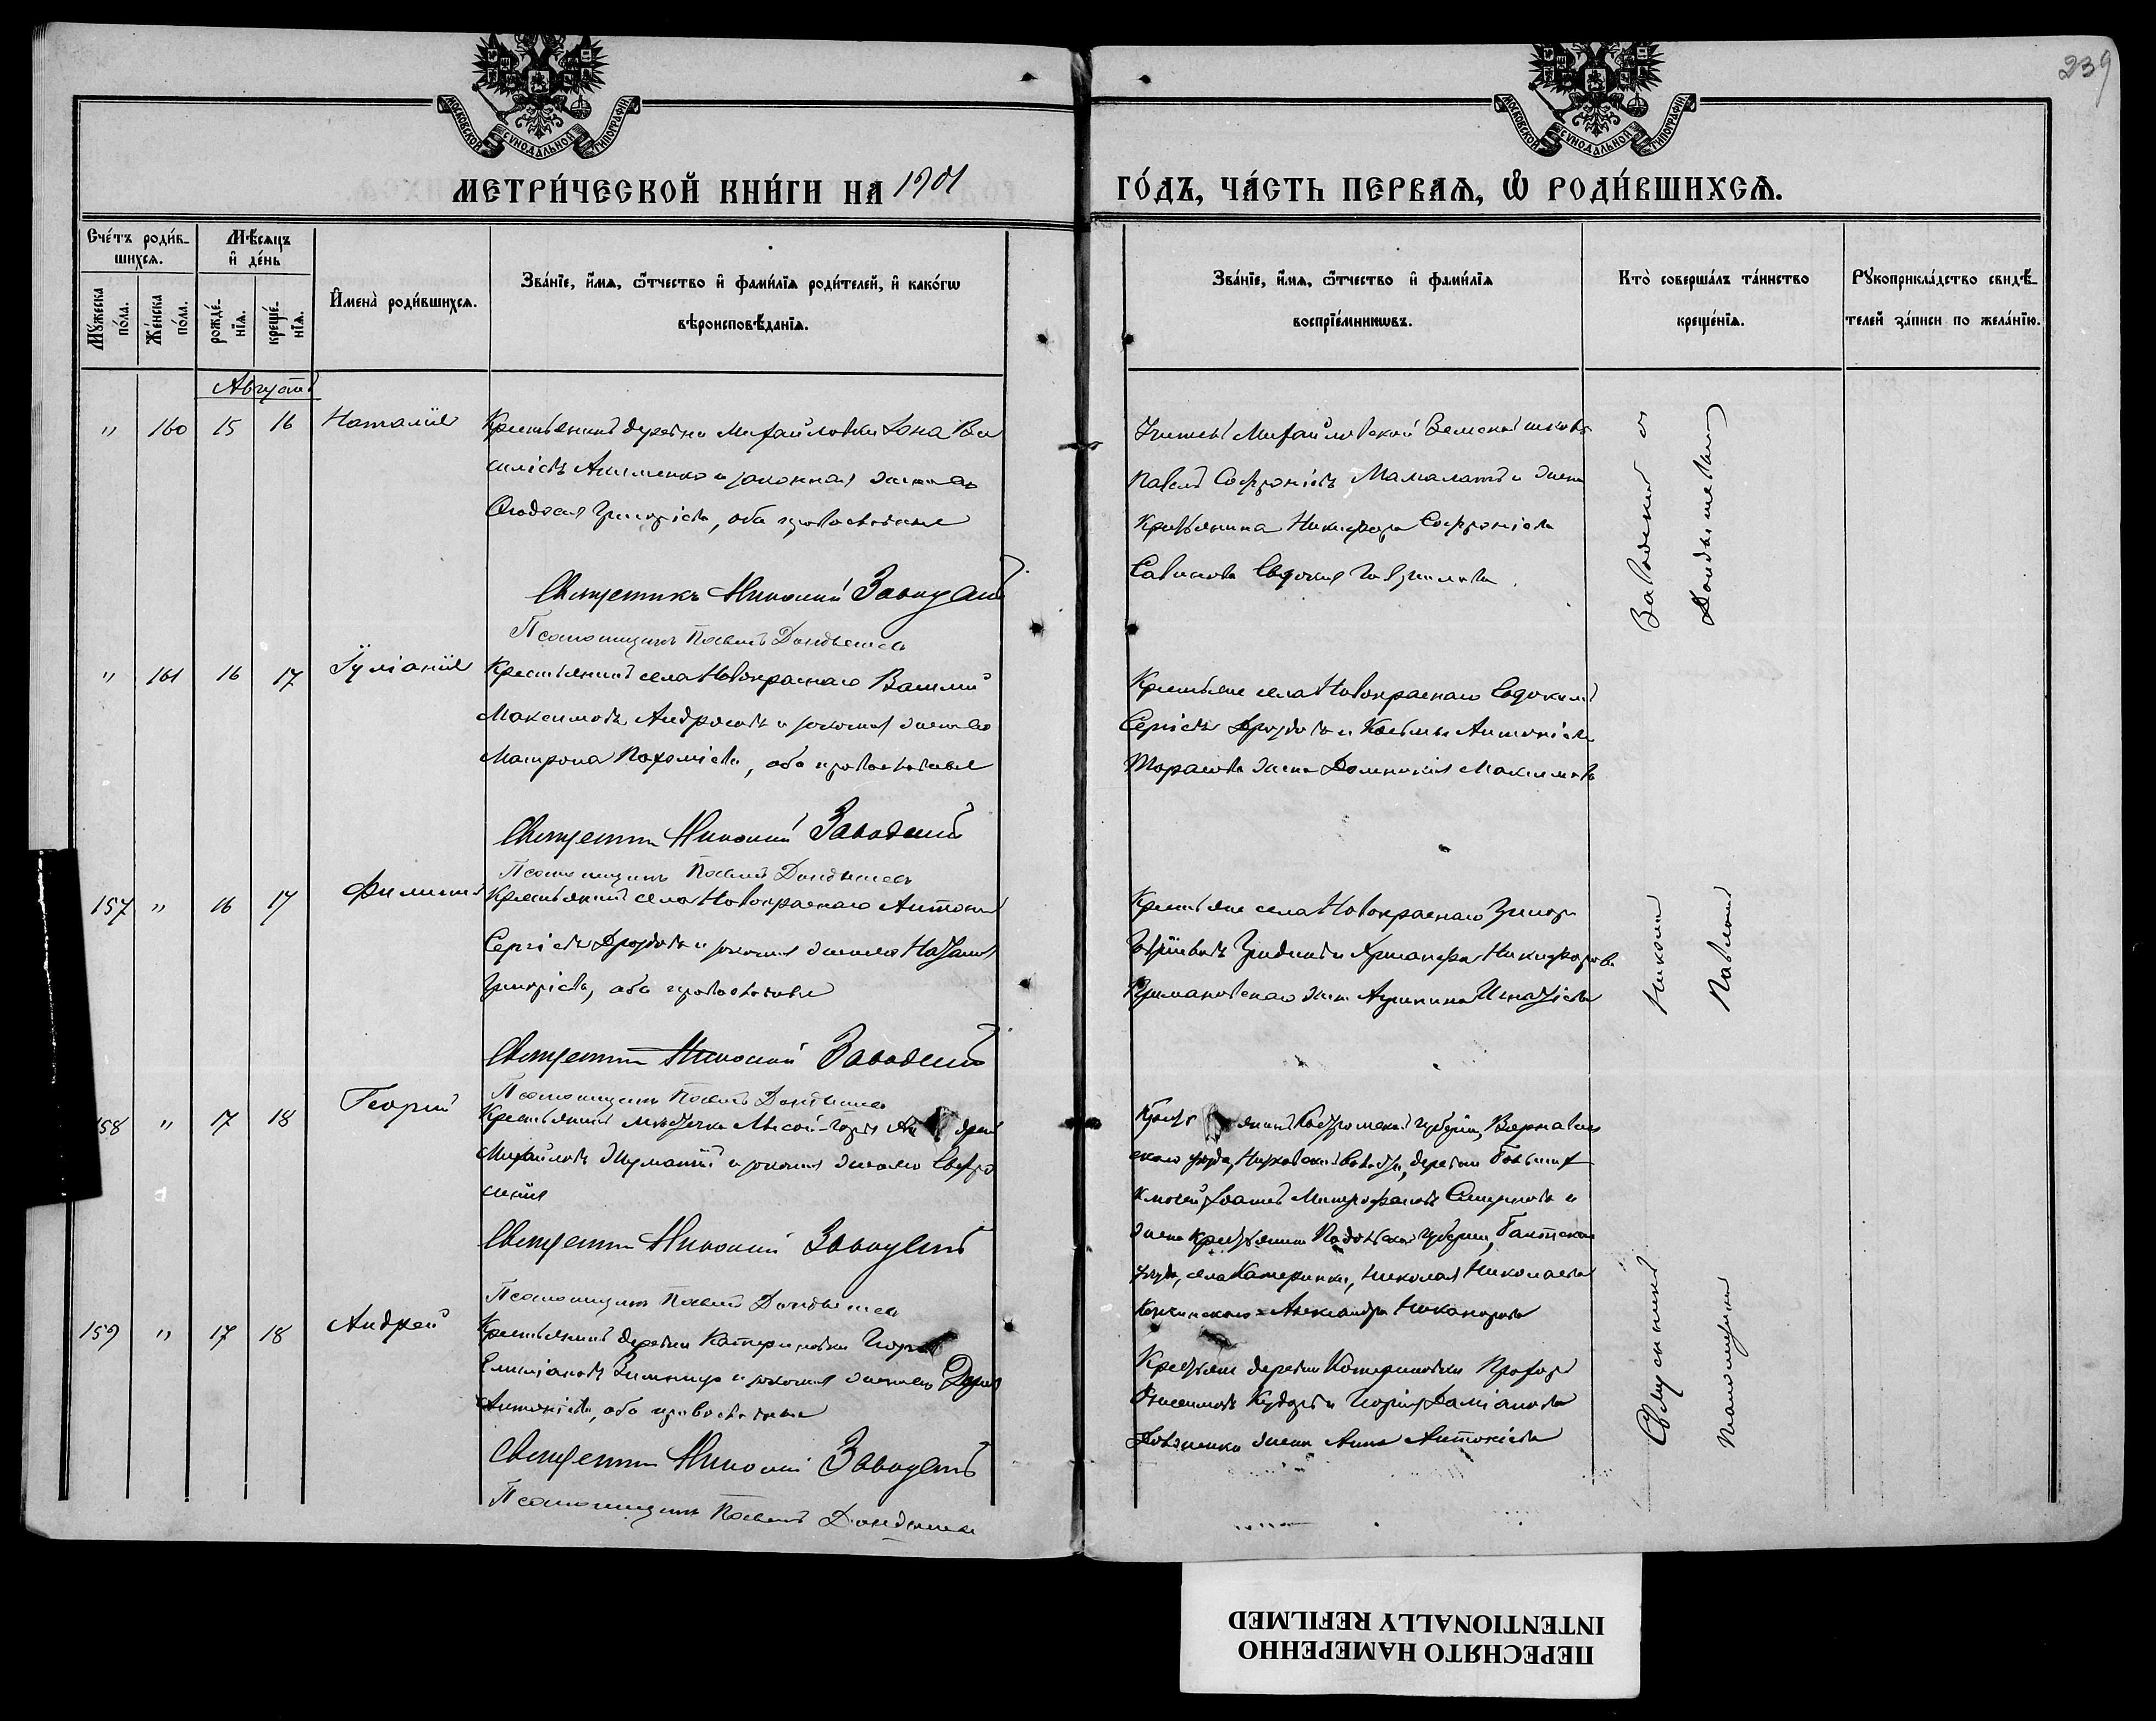 239
МОСКОВСКОЙ СѴНОДАЛЬНОЙ ТИПОГРАФІИ
МОСКОВСКОЙ СѴНОДАЛЬНОЙ ТИПОГРАФІИ
МЕТРИ́ЧЕСКОЙ КНИ́ГИ НА 1901
ГО́ДЪ, ЧА́СТЬ ПЕРВАѦ, Ѽ РОДИ́ВШИХСѦ.
Сче́тъ роди́в-
шихсѧ.
Мѣ́сѧцъ
и҆ де́нь
Мꙋ́жеска
по́ла.
Же́нска
по́ла.
рожде́-
нїѧ.
креще́-
нїѧ.
И҆мена̀ роди́вшихсѧ.
Зва́нїе, и҆́мѧ, ѻ҆́тчество и҆ фами́лїѧ роди́телей, и҆ како́гѡ
вѣроисповѣ́данїѧ.
Зва́нїе, и҆́мѧ, ѻ҆́тчество и҆ фами́лїѧ
воспрїе́мникѡвъ.
Кто̀ соверша́лъ та́инство
креще́нїѧ.
Рꙋкоприкла́дство свидѣ́-
телей за́писи по жела́нїю.
Августъ
" 160 15 16 Наталія
Крестьянинъ деревни Михайловки Іона Ва
сильевъ Акименко и законная жена его
Ѳеодосія Григоріева, оба православные
Священникъ Николай Заводскій
Псаломщикъ Павелъ
Учитель Михайловской Земской школы
Павелъ Софроніевъ и жена
Крестьянина Никифора Софроніева
Савинова Евдокія Гавриилова
" 161 16 17 Іуліанія
Крестьянинъ села Новокраснаго Василій
Максимовъ Андросовъ и законная жена его
Матрона Пахоміева, оба православные
Священникъ Николай Заводскій
Псаломщикъ Павелъ
Крестьяне села Новокраснаго Евдокимъ
Сергіевъ Дроздовъ и Космы Антоніева
Тарасова жена Домникія Максимова
157 " 16 17 Филиппъ
Крестьянинъ села Новокраснаго Антоній
Сергіевъ Дроздовъ и законная жена его Наталія
Григоріева, оба православные
Священникъ Николай Заводскій
Псаломщикъ Павелъ
Крестьяне села Новокраснаго Григорій
Никифорова
жена Акилина Игнатіева
158 " 17 18 Георгій
Крестьянинъ мѣстечка Лысой-Горы
Михайловъ и законная жена его Евфро
синія
Священникъ Николай Заводскій
Псаломщикъ Павелъ
Костромской губерніи,
скаго уѣзда, деревни
Іоаннъ Митрофановъ Смирновъ и
жена крестьянина Подольской губерніи, Балтскаго
уѣзда, села Катеринки, Николая Николаева
Александра Никанорова
159 " 17 18 Андрей
Крестьянинъ деревни Катериновки
Емиліановъ и законная жена его Дарія
Антоніева, оба православные
Священникъ Николай Заводскій
Псаломщикъ Павелъ
Крестьяне деревни Катериновки Прохоръ
Онисимовъ и Георгія Даміанова
жена Анна Антоніева
Священникъ Николай Заводскій съ
Псаломщикомъ Павломъ
ПЕРЕСНЯТО НАМЕРЕННО
INTENTIONALLY REFILMED